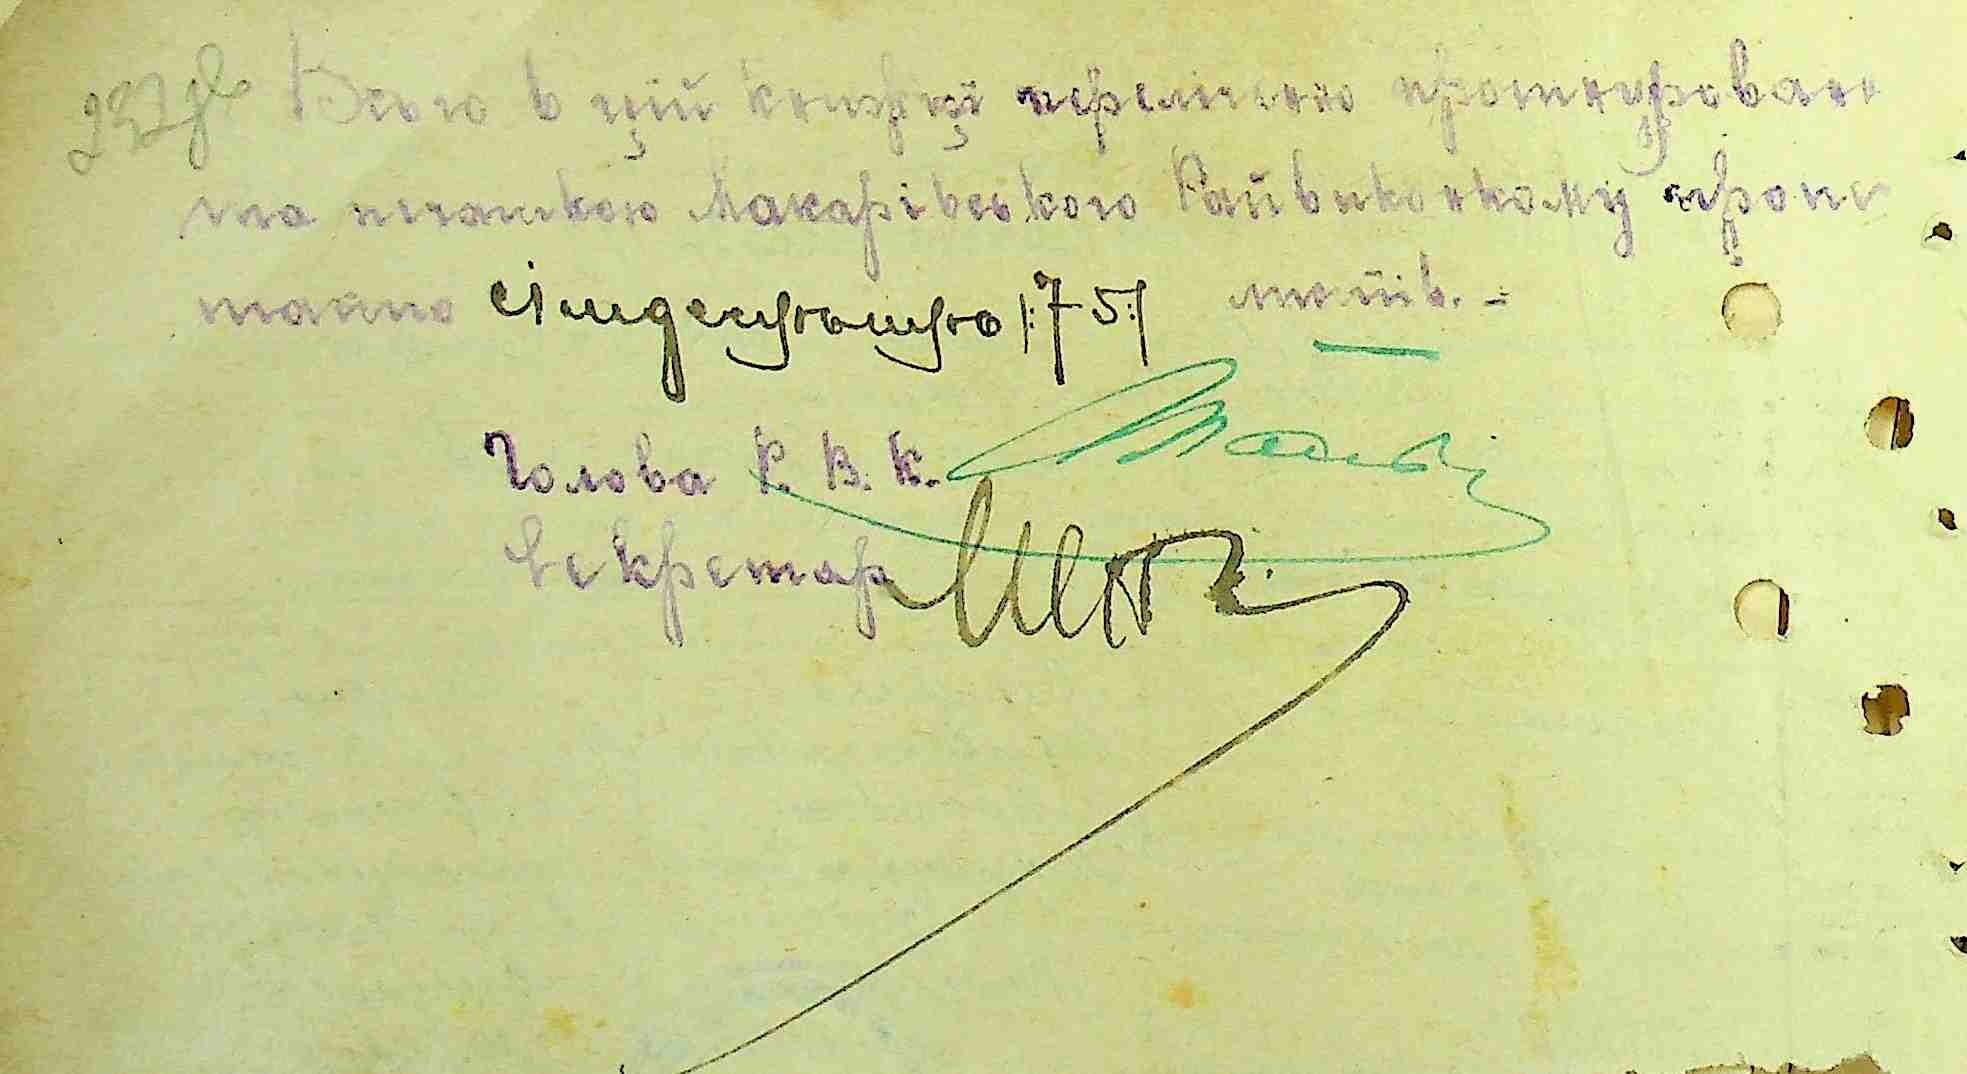 Всього в цій книзі перелічено пронумеровано
та печаткою Макарівського Райвиконкому пропе
чатано сімдесятьпять /:75:/ листів. -
Голова Р. В. К.
Секретар